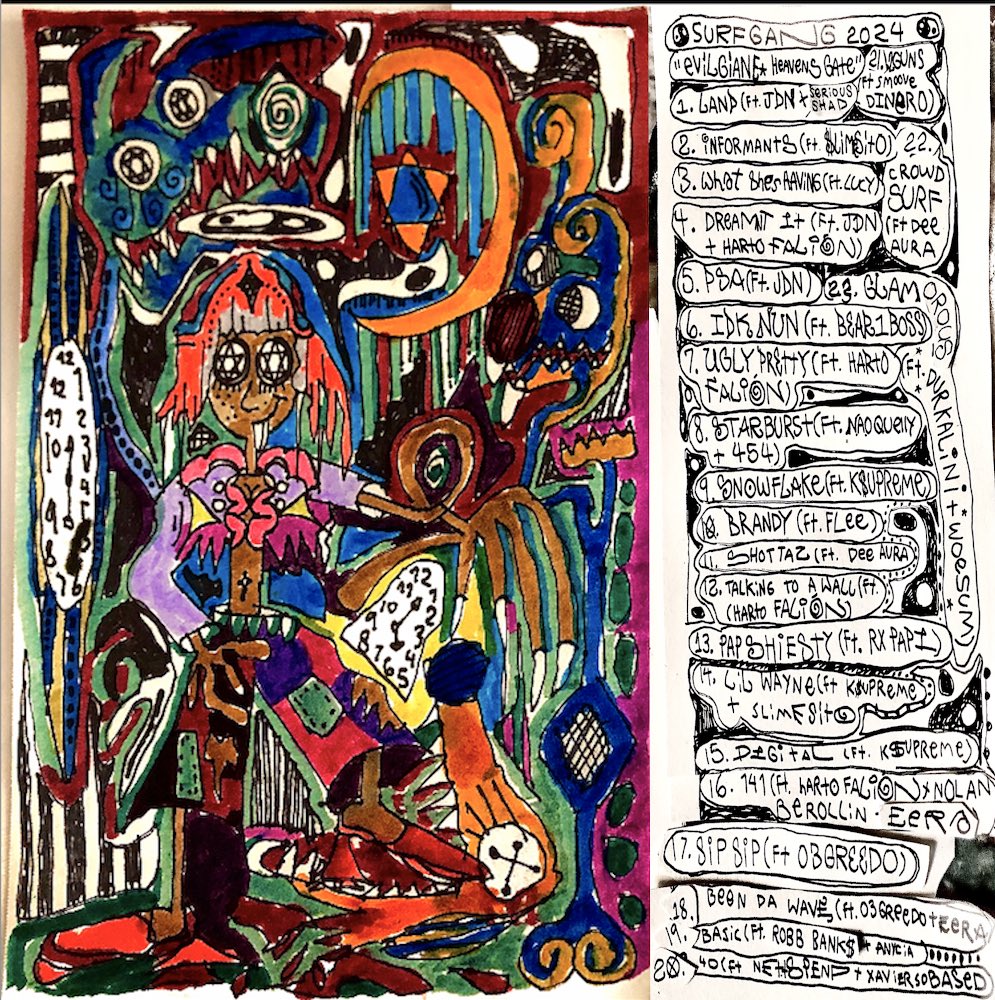 SURFGANG 2024
"EVILGIANE* HEAVENS GATE"
1. LAND (Ft. JDN + SERIOUS SHAD
2. iNFORMANTS (Ft. $LiMSiTO)
3. WHAT SHES HAVING (Ft. LUCY)
4. DREAMNT It (Ft. JDN
+ HARTO FALiON)
5. PSA (Ft. JDN)
6. IDK NUN (Ft. BEAR1BOSS)
7. UGLY PRETTY (Ft. HARTO
FALiON)
8. STARBURSt (Ft. NAOQUEllY
+ 454)
9. SNOWFLAKE (Ft. K$UPREME)
10. BRANDY (Ft. FLee)
11. SHOTTAZ (Ft. Dee AURA)
12. TALKING TO A WALL (Ft.
(HARTO FALiON)
13. PAP SHiESTY (Ft. RX PAPI)
14. LiL WAYNE (Ft K$UPREME
+ SLiMESitO
15. DIGITAL (Ft. K$UPREME)
16. 141 (Ft. HARTO FALiON X NOLAN
BEROLLiN · EERA)
17. SiP SiP (Ft 03GREEDO)
18. BEEN DA WAVE (Ft. 03GREEDO + EERA
19. BASiC (Ft. ROBB BANK$ + ANYCiA
20. 40 (Ft NETTSPEND + XAVIERSOBASED
21. 2GUNS
(Ft SMOOVE
DINERO)
22.
CROWD
SURF
(Ft Dee
AURA
23. GLAMOROUS
(Ft.* DURKALiNi + WOESUM)